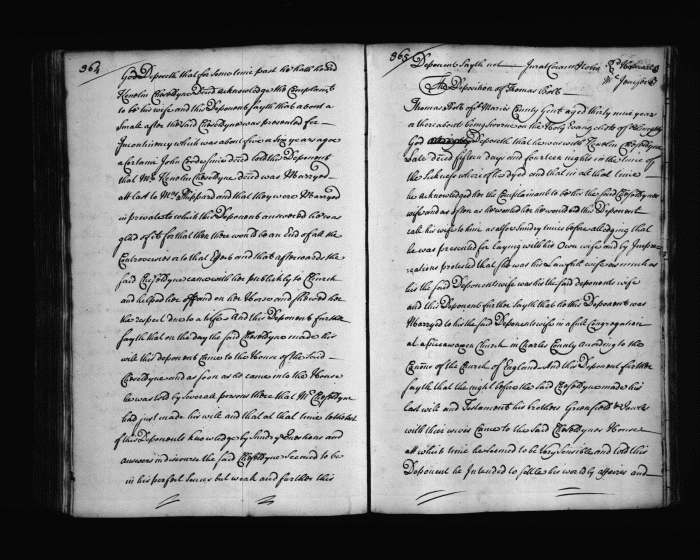 364
God Deposeth that for sometime past he hath heard
Kenelm Cheseldyne Decd acknowledge the Complainant
to be his wife and this Deponent saith that about a
small after the said Cheseldyne was presented for
Incontinency which was about five or six years agoe
a certaine John Coode since decd told this Deponent
that Mr Kenelm Cheseldyne decd was Marryed
at last to Mrs Sheppard and that they were Marryed
in private to which this Deponent answered he was
glad of it for that then there would be an End of all the
Controversies or to that Effect and that afterwards the
said Cheseldyne came with her publickly to Church
and helped her off and on her Horse and shewed her
the respect due to a wife And this Deponent further
sayth that on the day the said Cheseldyne made his
will this deponent Came to the House of the said
Cheseldyne and as soon as he came into the House
he was told by severall persons there that Mr Cheseldyne
had just made his will and that at that time to the best
of this Deponents knowledge by Sundry Questions and
answers in discourse the said Cheseldyne seemed to be
in his perfect senses but weak and further this
365
Deponent sayth not Jurat Coram
The Deposition of Thomas Bolt
Thomas Bolt of St Maries County Gent aged thirty nine years
or thereabouts being sworne on the Holy Evangelists of Almighty
God Deposeth that he was with Kenelm Cheseldyne
Late decd fifteen days and fourteen nights in the time of
the sickness whereof he dyed and that in all that time
he acknowledged her the Complainant to be his the said Cheseldynes
wife and as often as he wanted her he would bid this Deponent
call his wife to him as also sundry times before alledging that
he was presented for laying with his Own wife and by
protested that she was his Lawfull wife as much as
his the said Deponents wife was his the said deponents wife
and this Deponent further sayth that he this Deponent was
Marryed to his the said Deponents wife in a full Congregation
at Church in Charles County according to the
Canons of the Church of England And this Deponent further
sayth that the night before the said Cheseldyne made his
last will and Testament his brothers Greenfield & Jowles
with their wives Came to the said Cheseldynes House
at which time he seemed to be very sensible and told this
Deponent he Intended to settle his worldly affaires and